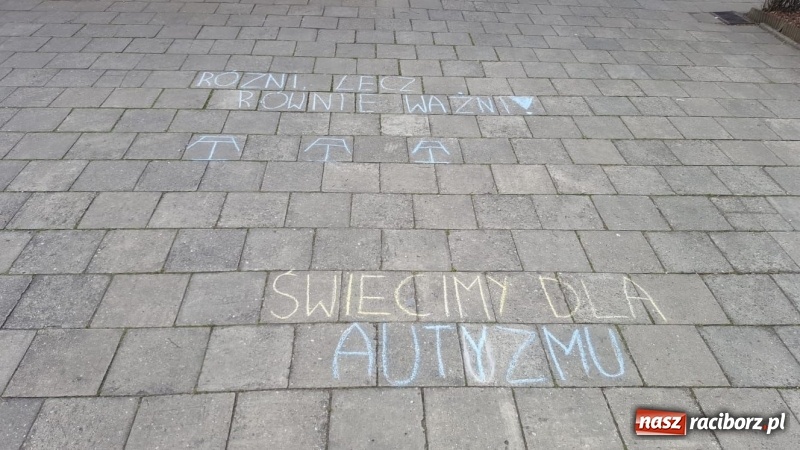 ROZNI, LECZ
ROWNIE WAŻNI
ŚWIECIMY DLA
AUTYZMU
nasz raciborz.pl